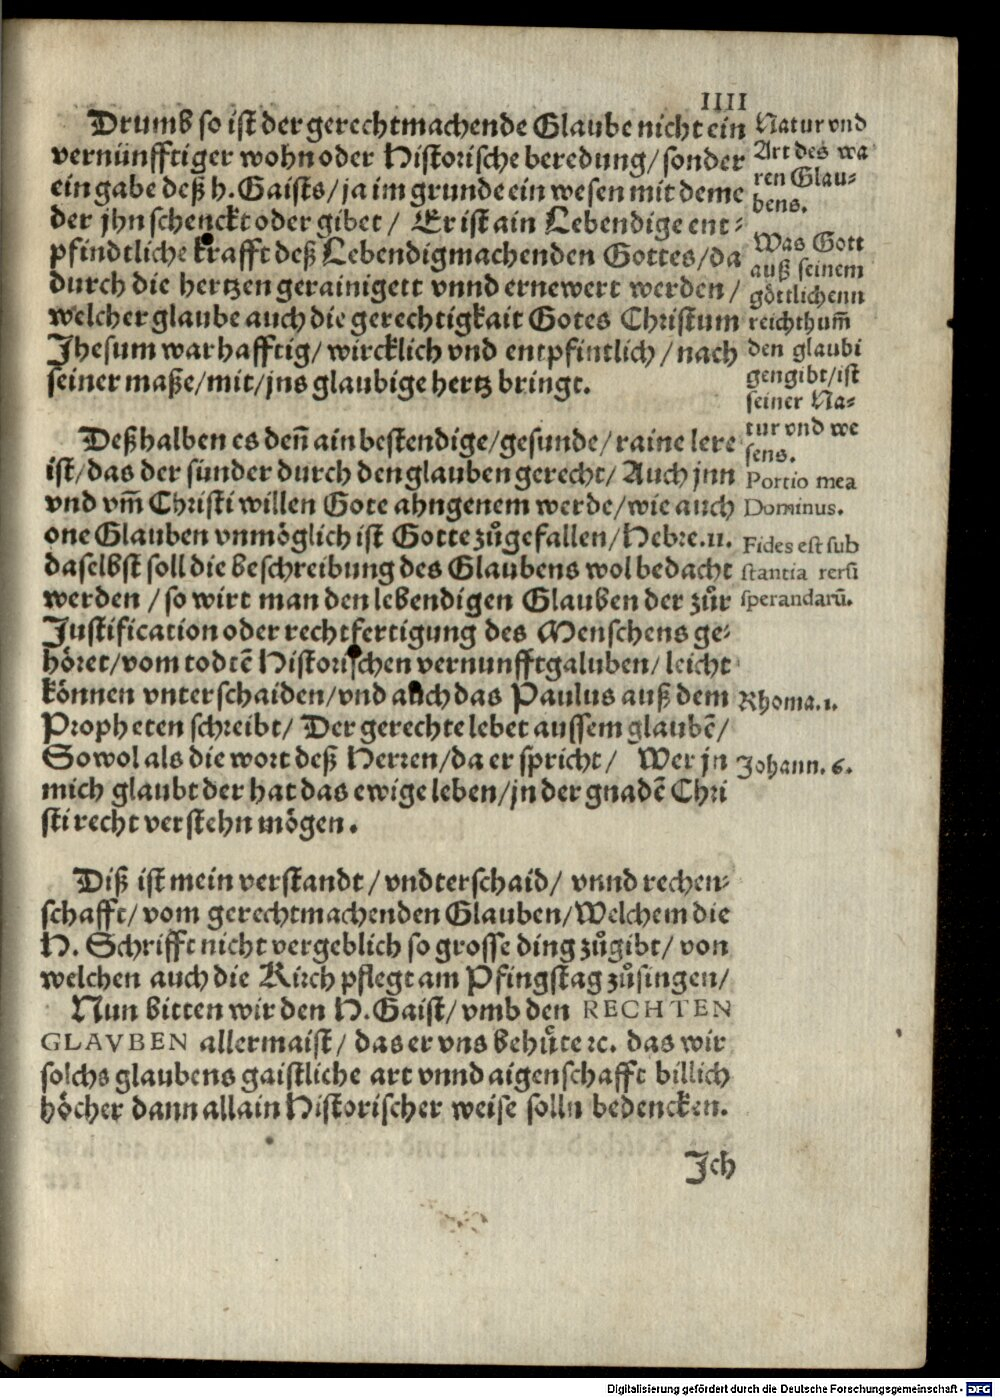 IIII
Drumb so ist der gerechtmachende Glaube nicht ein
vernünfftiger wohn oder Historische beredung/ sonder
ein gabe deß h. Gaists/ ja im grunde ein wesen mit deme
der jhn schenckt oder gibet/ Er ist ain Lebendige ent⸗
pfindtliche krafft deß Lebendigmachenden Gottes/ da
durch die hertzen gerainigett vnnd ernewert werden/
welcher glaube auch die gerechtigkait Gotes Christum
Jhesum warhafftig/ wircklich vnd entpfintlich/ nach
seiner maße/ mit/ jns glaubige hertz bringt.
Natur vnd
Art des wa
ren Glau⸗
bens.
Was Gott
auß seinem
göttlichenn
reichthum̃
den glaubi
gen gibt/ ist
seiner Na⸗
tur vnd we
sens.
Deßhalben es den̄ ain bestendige/ gesunde/ raine lere
ist/ das der sünder durch den glauben gerecht/ Auch jnn
vnd vm̃ Christi willen Gote ahngenem werde/ wie auch
one Glauben vnmöglich ist Gotte zůgefallen/ Hebre.11.
daselbst soll die beschreibung des Glaubens wol bedacht
werden / so wirt man den lebendigen Glauben der zůr
Justification oder rechtfertigung des Menschens ge⸗
höret/ vom todtē Historischen vernunfftgaluben/ leicht
können vnterschaiden/ vnd auch das Paulus auß dem
Propheten schreibt/ Der gerechte lebet aussem glaubē/
So wol als die wort deß Herren/ da er spricht/ Wer jn
mich glaubt der hat das ewige leben/ jn der gnadē Chri
sti recht verstehn mögen.
Portio mea
Dominus.
Fides est sub
stantia rerū
sperandarū.
Rhoma.1.
Johann. 6.
Diß ist mein verstandt/ vndterschaid/ vnnd rechen⸗
schafft/ vom gerechtmachenden Glauben/ Welchem die
H. Schrifft nicht vergeblich so grosse ding zůgibt/ von
welchen auch die Kirch pflegt am Pfingstag zůsingen/
Nun bitten wir den H. Gaist/ vmb den RECHTEN
GLAVBEN allermaist/ das er vns behůte ꝛc. das wir
solchs glaubens gaistliche art vnnd aigenschafft billich
höcher dann allain Historischer weise solln bedencken.
Jch
Digitalisierung gefördert durch die Deutsche Forschungsgemeinschaft - DFG